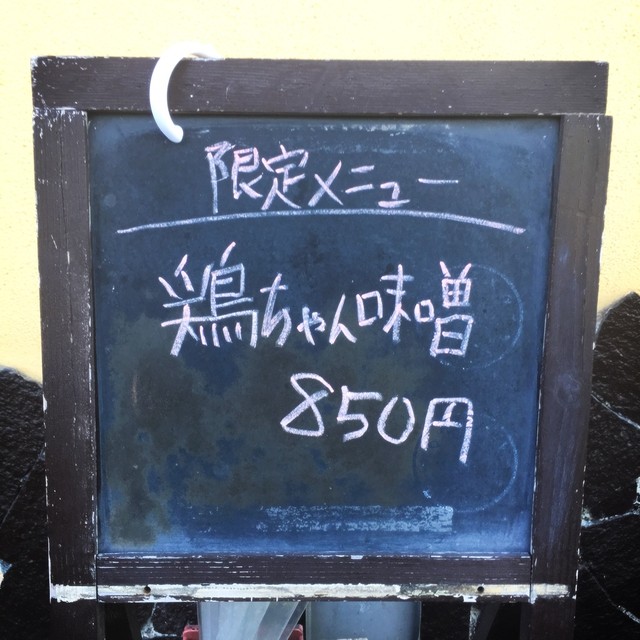 限定メニュー
鶏ちゃん味噌
850円